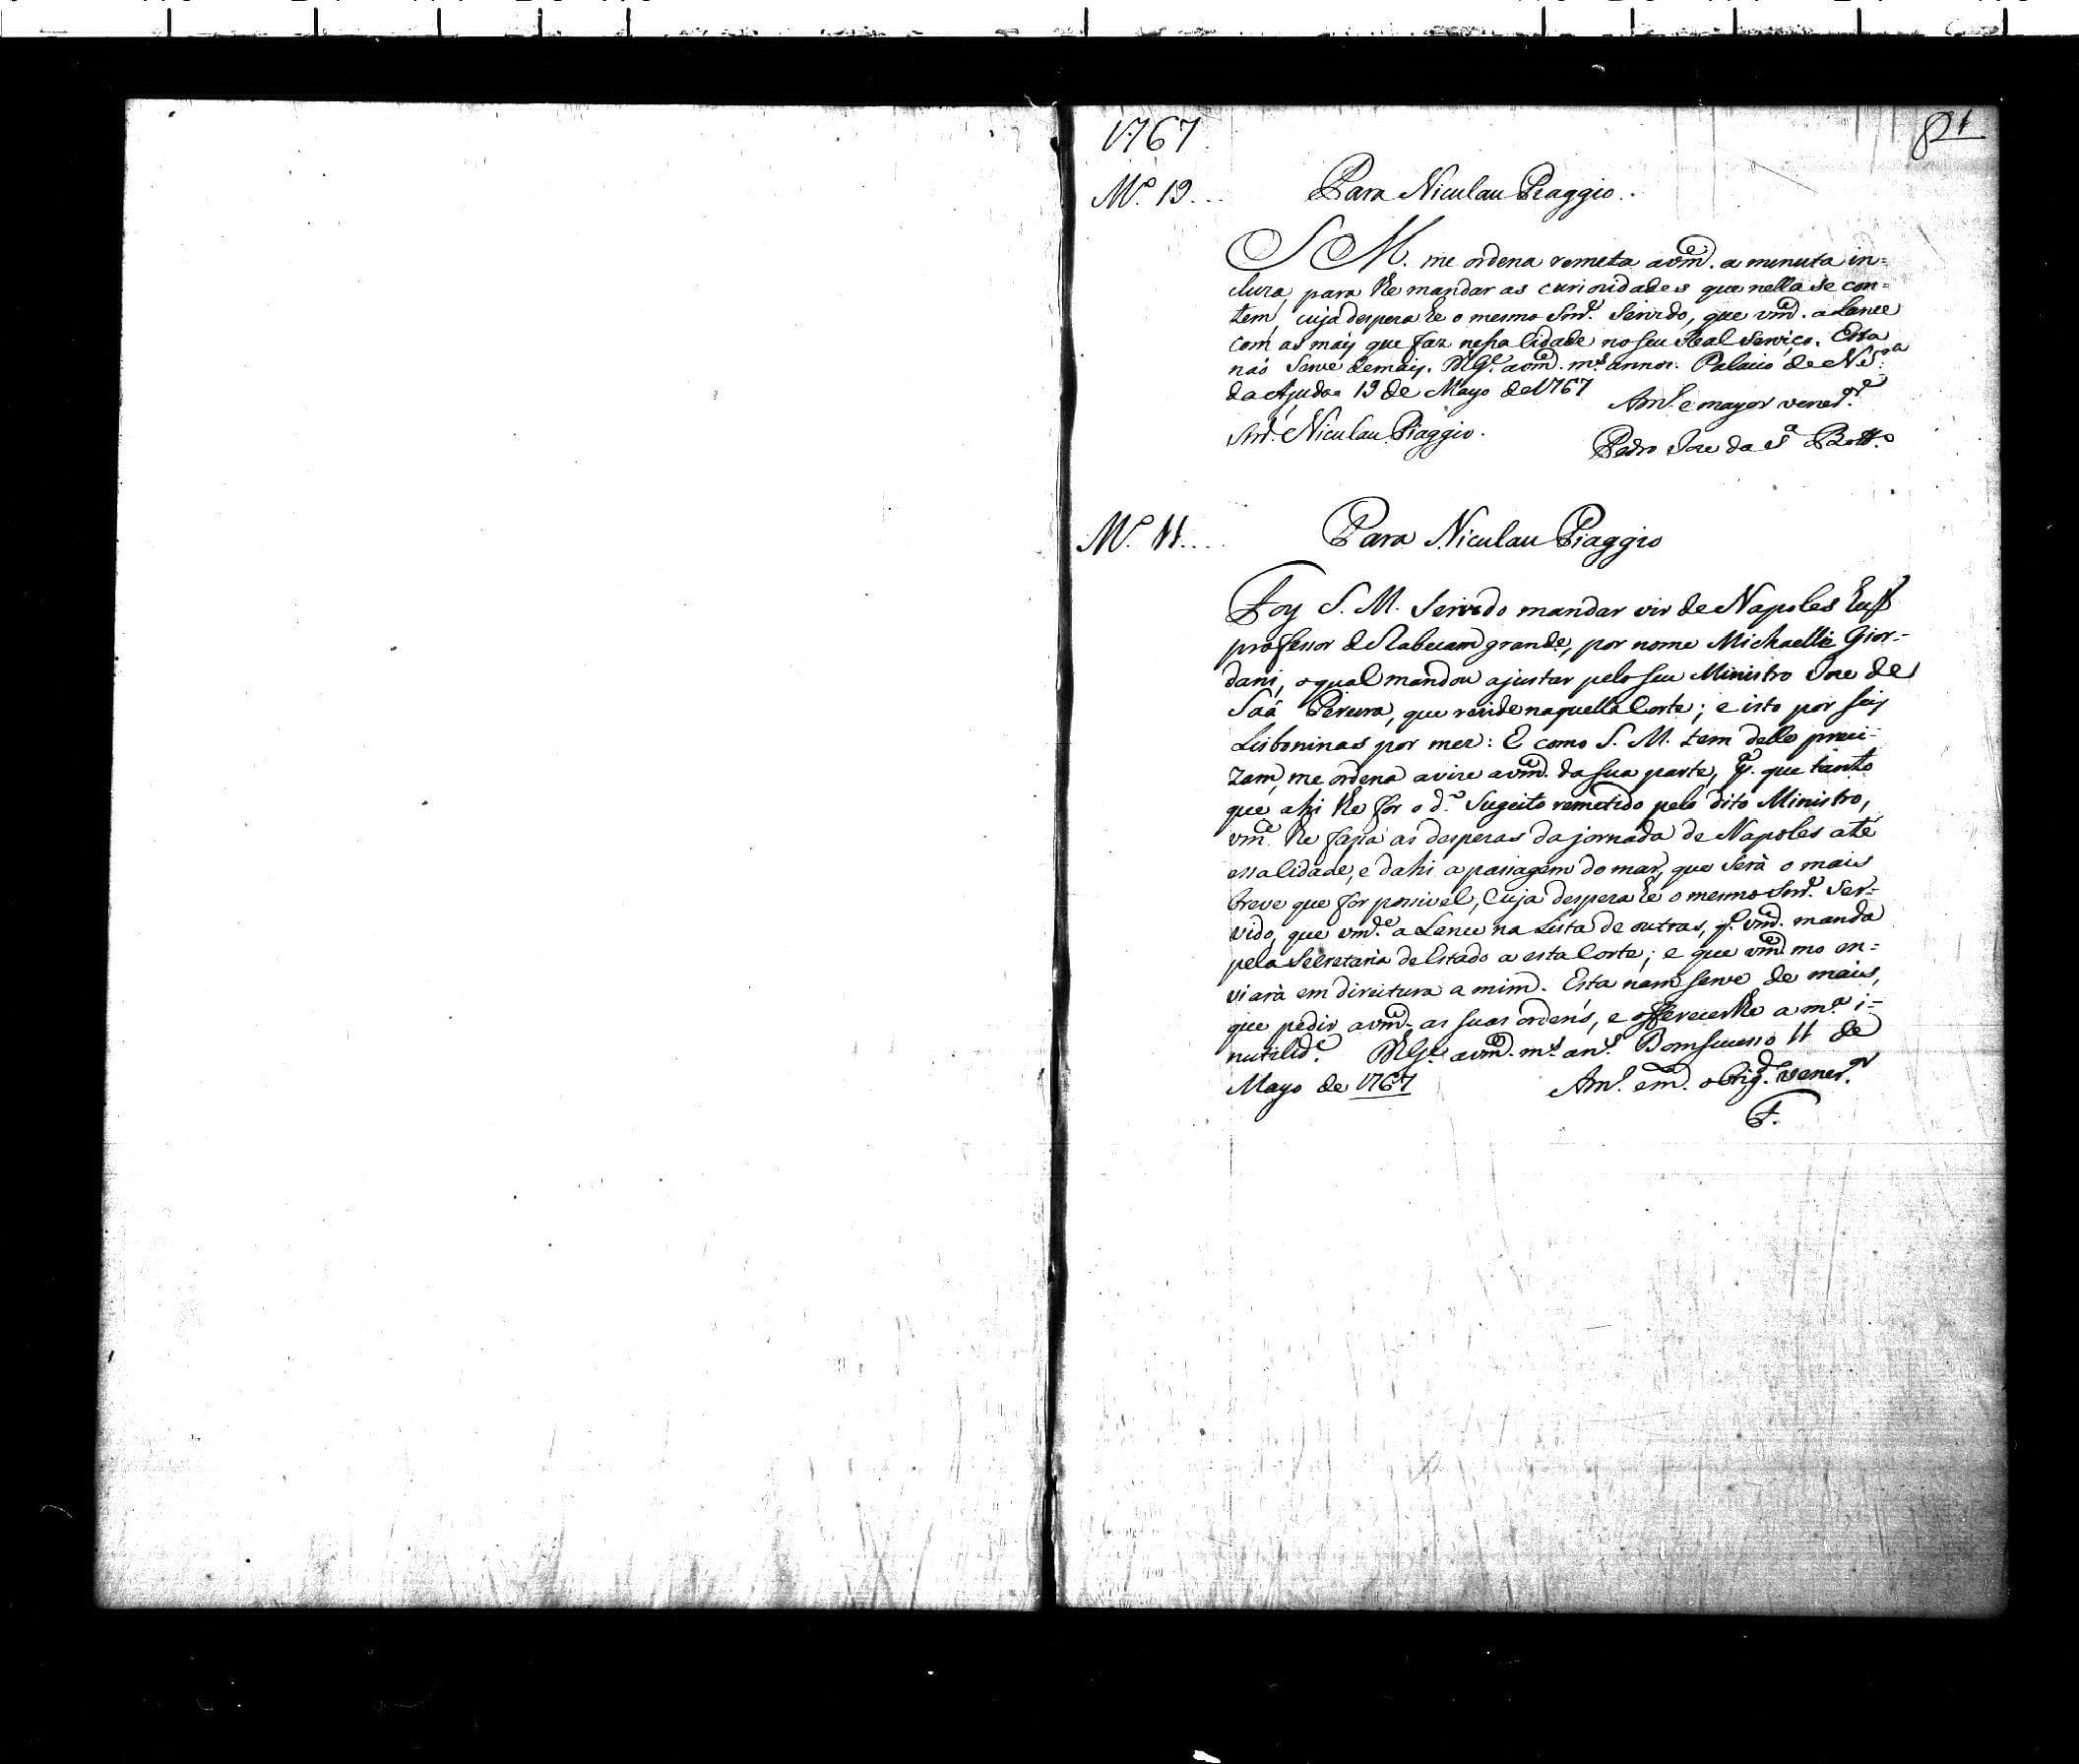 1767
81
M.º 19...
Para Niculau Piaggio.
S M. me ordena remeta avm.ce a minuta in=
cluza, para lhe mandar as curiozidades que nella se con=
tem, cuja despeza he o mesmo Snr.º Servido, que vm.ce a Lance
com as mais que faz nessa Cidade no seu Real Serviço. Esta
não Serve demais. D.s G.e avm.ce m.s annos. Palacio de N. S.ra
da Ajuda 19 de Mayo de 1767
Am.º e mayor vene.or
Snr. Niculau Piaggio.
Pedro Joze da S.a Bott.º
M.º 11....
Para Niculau Piaggio
Foy S. M. Servido mandar vir de Napoles hum
professor de Rabecam grande, por nome Michaelle Gior=
dani, o qual mandou ajustar pelo seu Ministro Joze de
Saá Pereira, que rezide naquella Corte; e isto por seis
Lisboninas por mez: E como S. M. tem delle preci=
zam, me ordena avize avm.ce da sua parte, p.a que tanto
que ahi lhe for o d.º Sugeito remetido pelo dito Ministro,
vm.ce lhe fassa as despezas da jornada de Napoles até
essa Cidade, e dahi a passagem do mar, que será o mais
breve que for possivel, Cuja despeza he o mesmo Snr.º Ser=
vido, que vm.ce a Lance na Lista de outras, q.e vm.ce manda
pela Secretaria de Estado a esta Corte; e que vm.ce mo en=
viará em direitura a mim. Esta nam serve de mais,
que pedir avm.ce as suas ordens, e offerecerlhe a m.a i=
nutilid.e D.s G.e avm.ce m.s an.s Bomsucesso 11 de
Mayo de 1767
Am.º e m. obrig.do vener.or
F.